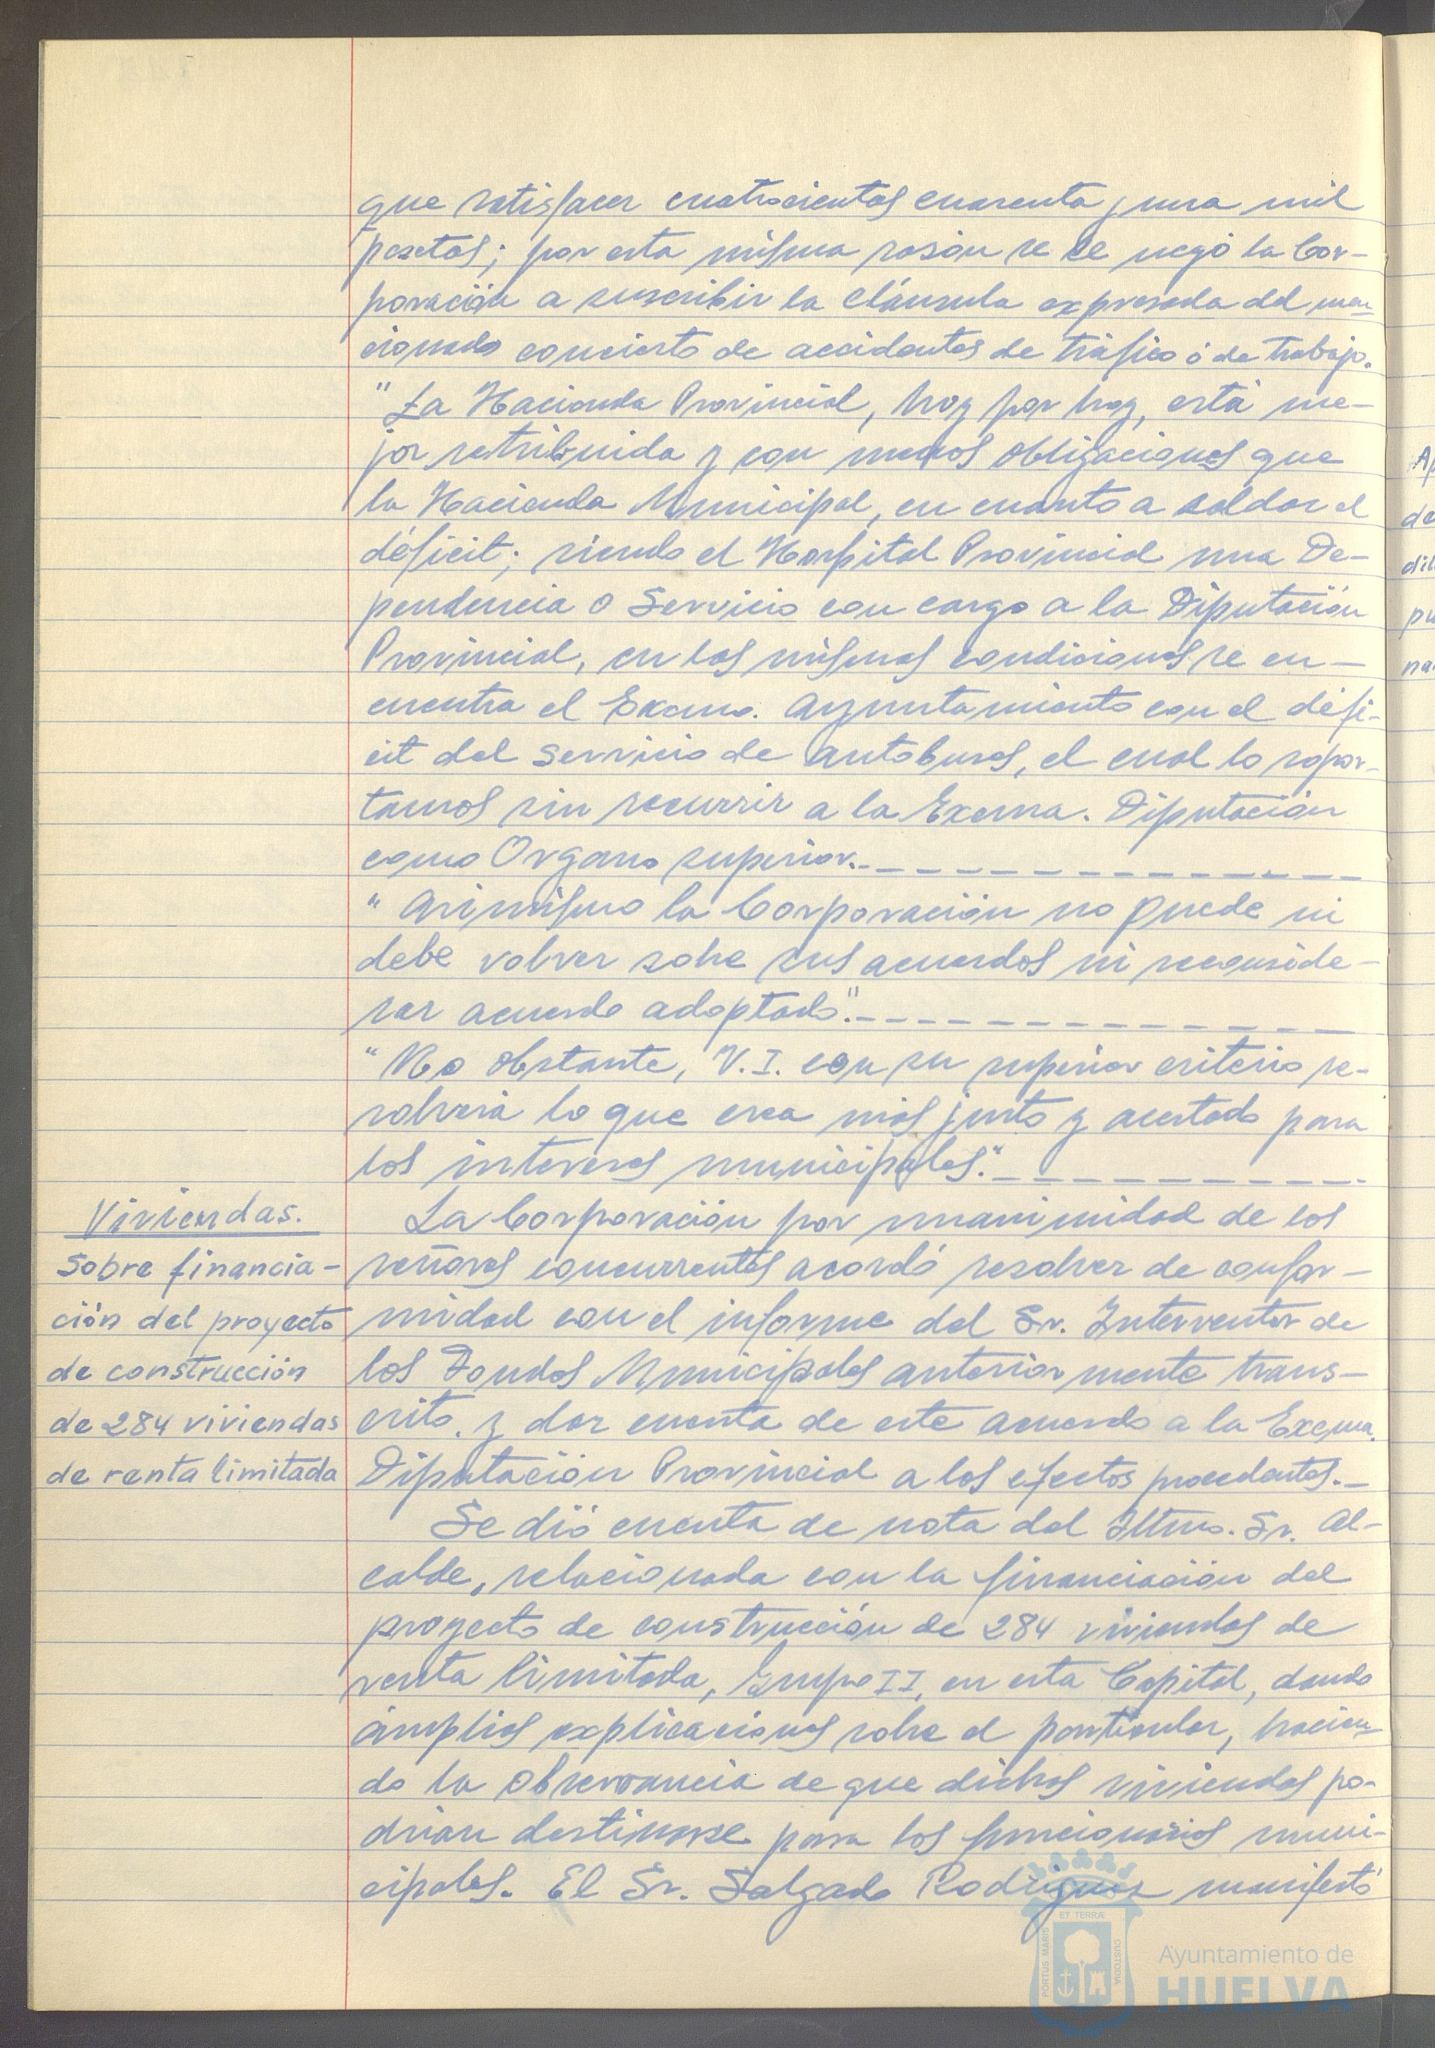 que satisfacer cuatrocientas cuarenta y una mil
pesetas; por esta misma rasón se le negó la Cor-
poración a suscribir la cláusula expresada del men-
cionado concierto de accidentes de tráfico ó de trabajo.
"La Hacienda Provincial, hoy por hoy, está me-
jor retribuida y con menos obligaciones que
la Hacienda Municipal, en cuanto a saldar el
déficit; siendo el Hospital Provincial una De-
pendencia o Servicio con cargo a la Diputación
Provincial, en las mismas condiciones se en-
cuentra el Excmo. Ayuntamiento con el défi-
cit del servicio de autobuses, el cual lo sopor-
tamos sin recurrir a la Excma. Diputación
como Organo superior.
"Asimismo la Corporación no puede ni
debe volver sobre sus acuerdos ni reconside-
rar acuerdo adoptado".
"No obstante, V.I. con su superior criterio re-
solverá lo que crea más justo y acertado para
los intereses municipales."
Viviendas.
Sobre financia-
ción del proyecto
de construcción
de 284 viviendas
de renta limitada
La Corporación por unanimidad de los
señores concurrentes acordó resolver de confor-
midad con el informe del Sr. Interventor de
los Fondos Municipales anteriormente trans-
crito, y dar cuenta de este acuerdo a la Excma.
Diputación Provincial a los efectos procedentes.
Se dió cuenta de nota del Iltmo. Sr. Al-
calde, relacionada con la financiación del
proyecto de construcción de 284 viviendas de
renta limitada, Grupo II, en esta Capital, dando
ámplias explicaciones sobre el particular, hacien-
do la observancia de que dichas viviendas po-
drían destinarse para los funcionarios muni-
cipales. El Sr. Salgado Rodríguez manifestó
Ap
de
dil
pu
na
PORTUS MARIS
ET TERRÆ
CUSTODIA
Ayuntamiento de
HUELVA